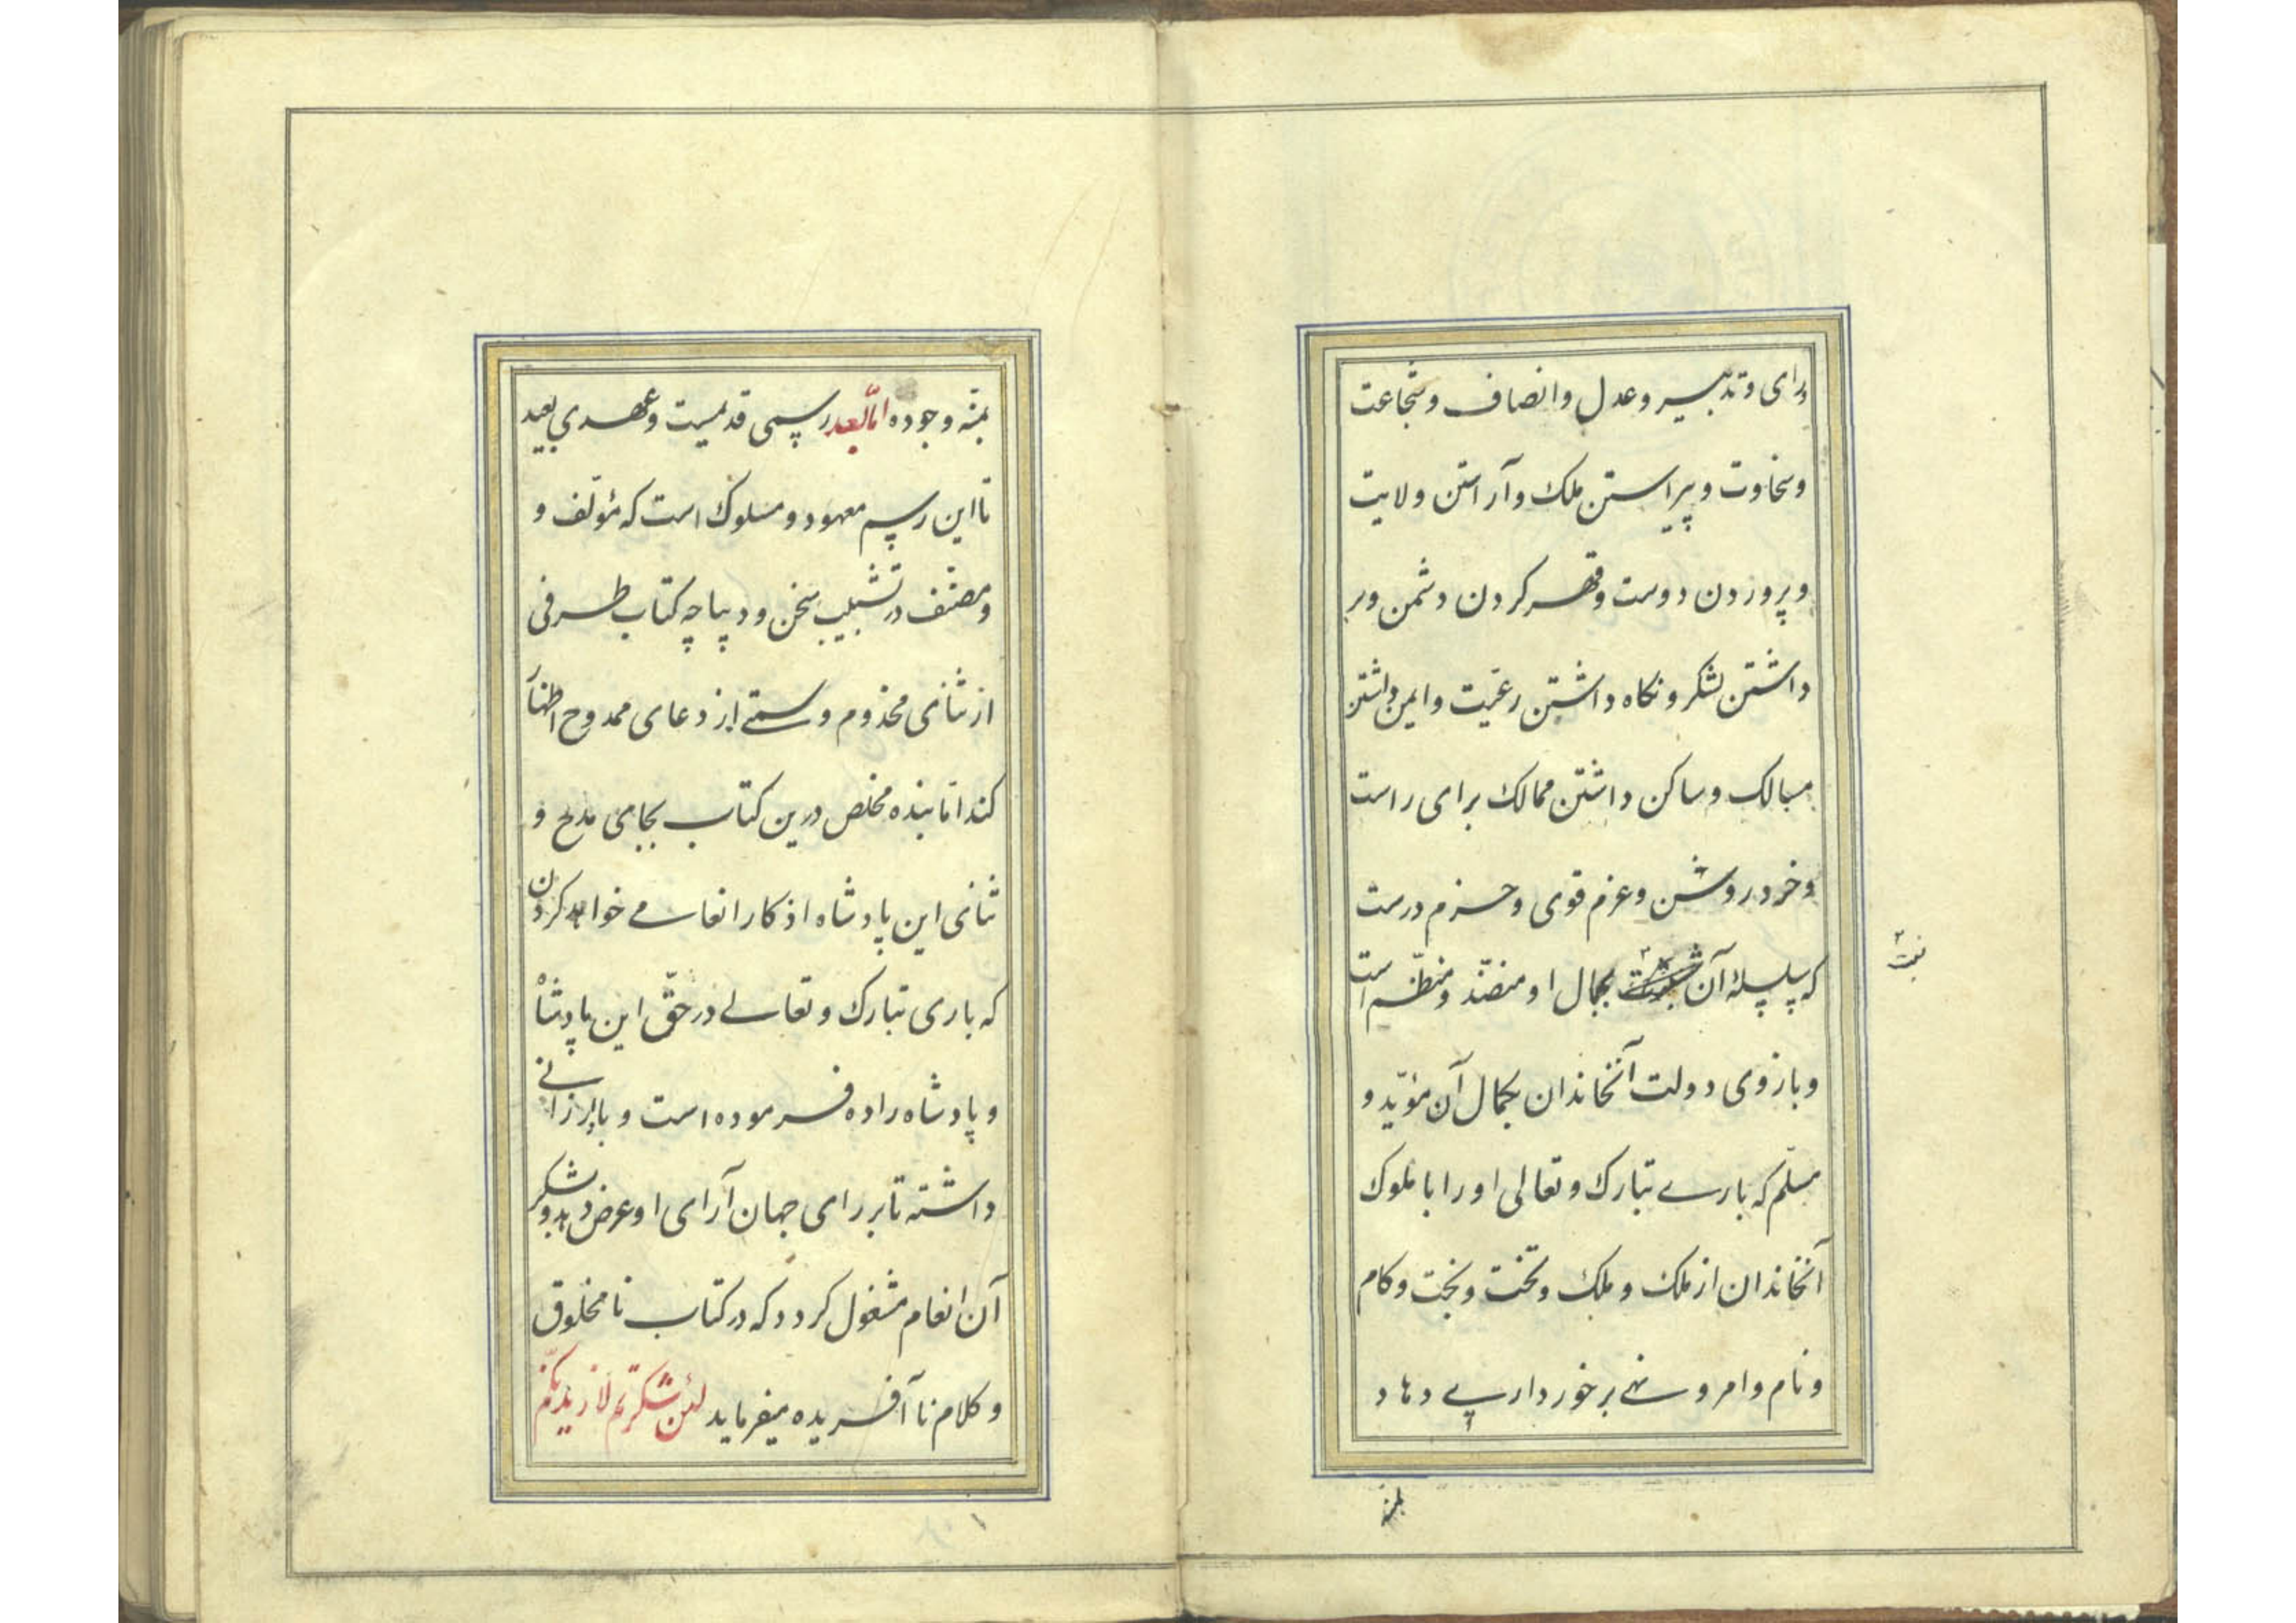 ورای و تدبیر و عدل و انصاف و شجاعت
و سخاوت و پیراستن ملک و آراستن ولایت
و پروردن دوست و قهر کردن دشمن و بر
داشتن لشکر و نکاه داشتن رعیّت و ایمن داشتن
مسالک و ساکن داشتن ممالک برای راست
و خرد روشن و عزم قوی و حزم درست
که سلسلهٔ آن بجمال او منضّد و منظّم است
و بازوی دولت آنخاندان بکمال آن مؤیّد و
مسلّم که باری تبارک و تعالی او را با ملوک
آنخاندان از ملک و ملک و تخت و بخت و کام
و نام و امر و نهی برخورداری دهاد
بمنّه
بمنّه وجوده امّا بعد رسمی قدیمست و عهدی بعید
تا این رسم معهود و مسلوک است که مؤلّف و
و مصنّف در تشبیب سخن و دیباچه کتاب طرفی
از ثنای مخدوم و دعای ممدوح اظهار
کند امّا بنده مخلص درین کتاب بجای مدح و
ثنای این پادشاه اذکار انعامی خواهد کردن
که باری تبارک و تعالی در حقّ این پادشاه
و پادشاه زاده فرموده است و بارزانی
داشته تا بر رای جهان آرای او عرض دهد و بشکر
آن انعام مشغول کردد که در کتاب نا مخلوق
و کلام نا آفریده میفرماید لئن شکرتم لازیدنّکم